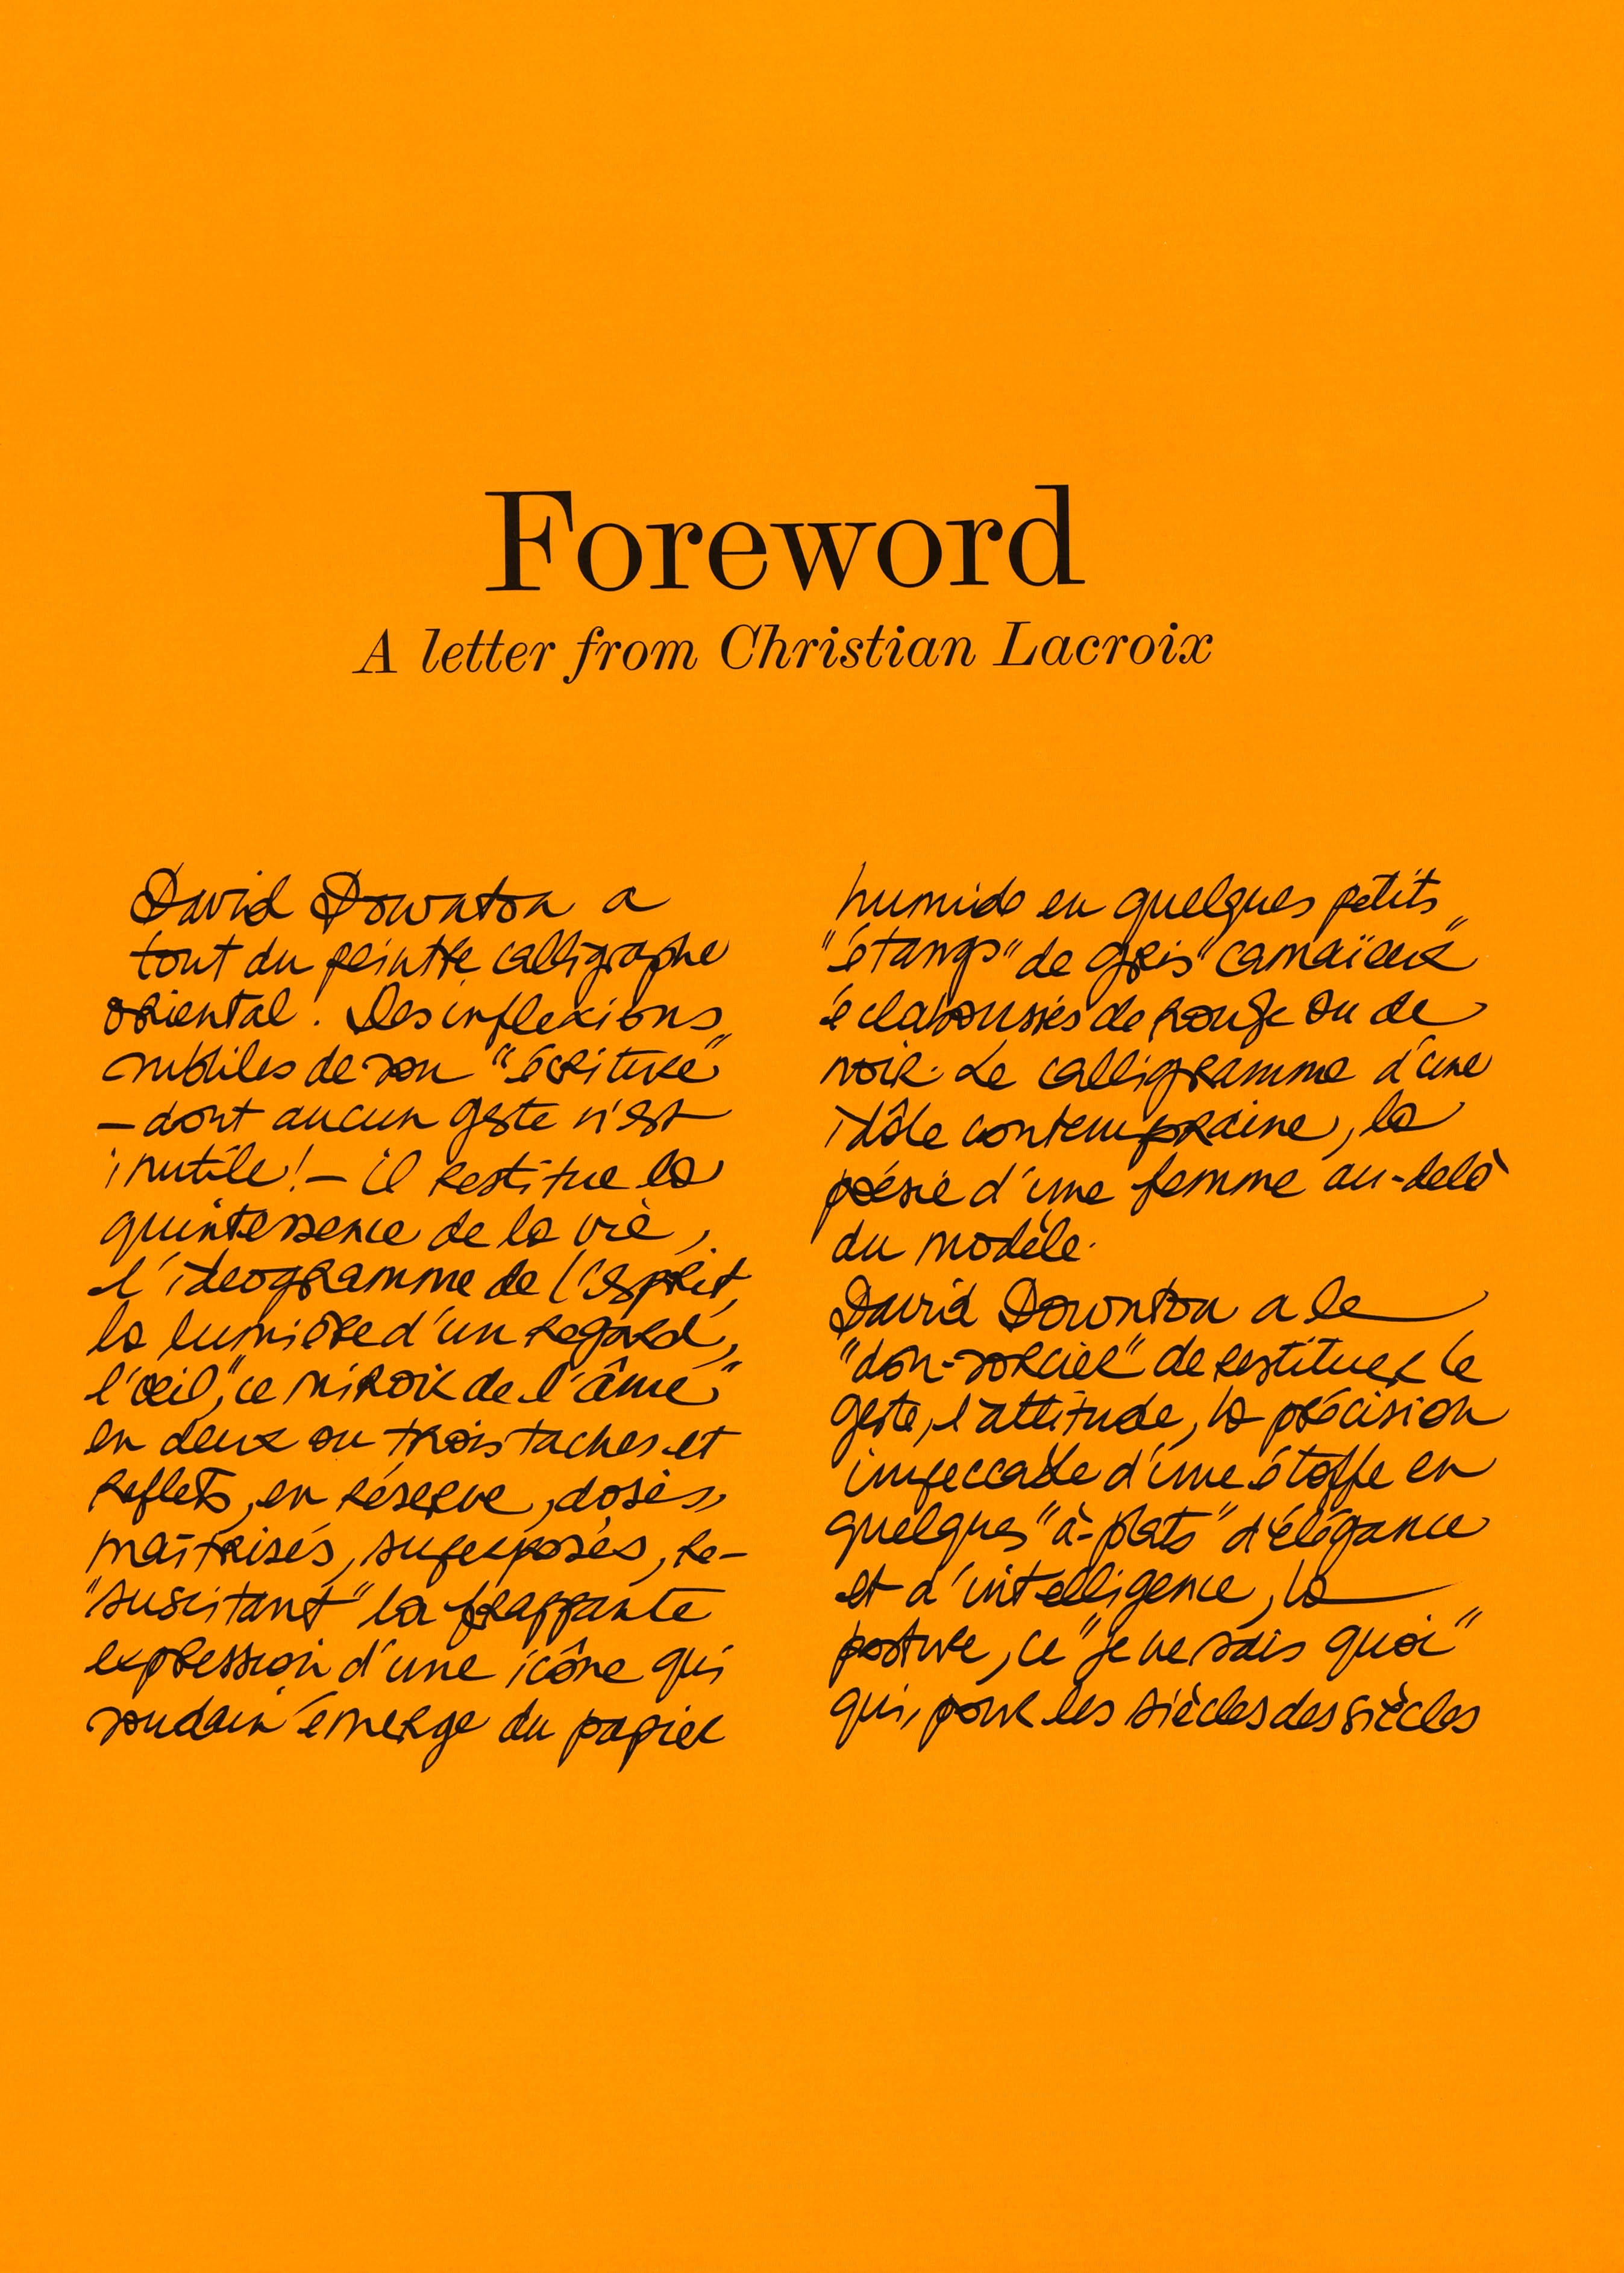 Foreword
A letter from Christian Lacroix
David Downton a
tout du peintre calligraphe
oriental. Des inflexions
subtiles de son "écriture"
— dont aucun geste n'est
inutile! — il restitue la
quintessence de la vie,
l'ideogramme de l'esprit,
la lumière d'un regard,
l'œil, "ce miroir de l'âme"
en deux ou trois taches et
reflets, en réserve, dosés,
maîtrisés, superposés, re-
"suscitant" la frappante
expression d'une icône qui
soudain émerge du papier
humide en quelques petits
"étangs" de gris "camaïeux"
éclaboussés de rouge ou de
noir. Le calligramme d'une
idôle contemporaine, la
poésie d'une femme au-delà
du modèle.
David Downton a le
"don-sorcier" de restituer le
geste, l'attitude, la précision
impeccable d'une étoffe en
quelques "à-plats" d'élégance
et d'intelligence, la
posture, ce "je ne sais quoi"
qui, pour les siècles des siècles